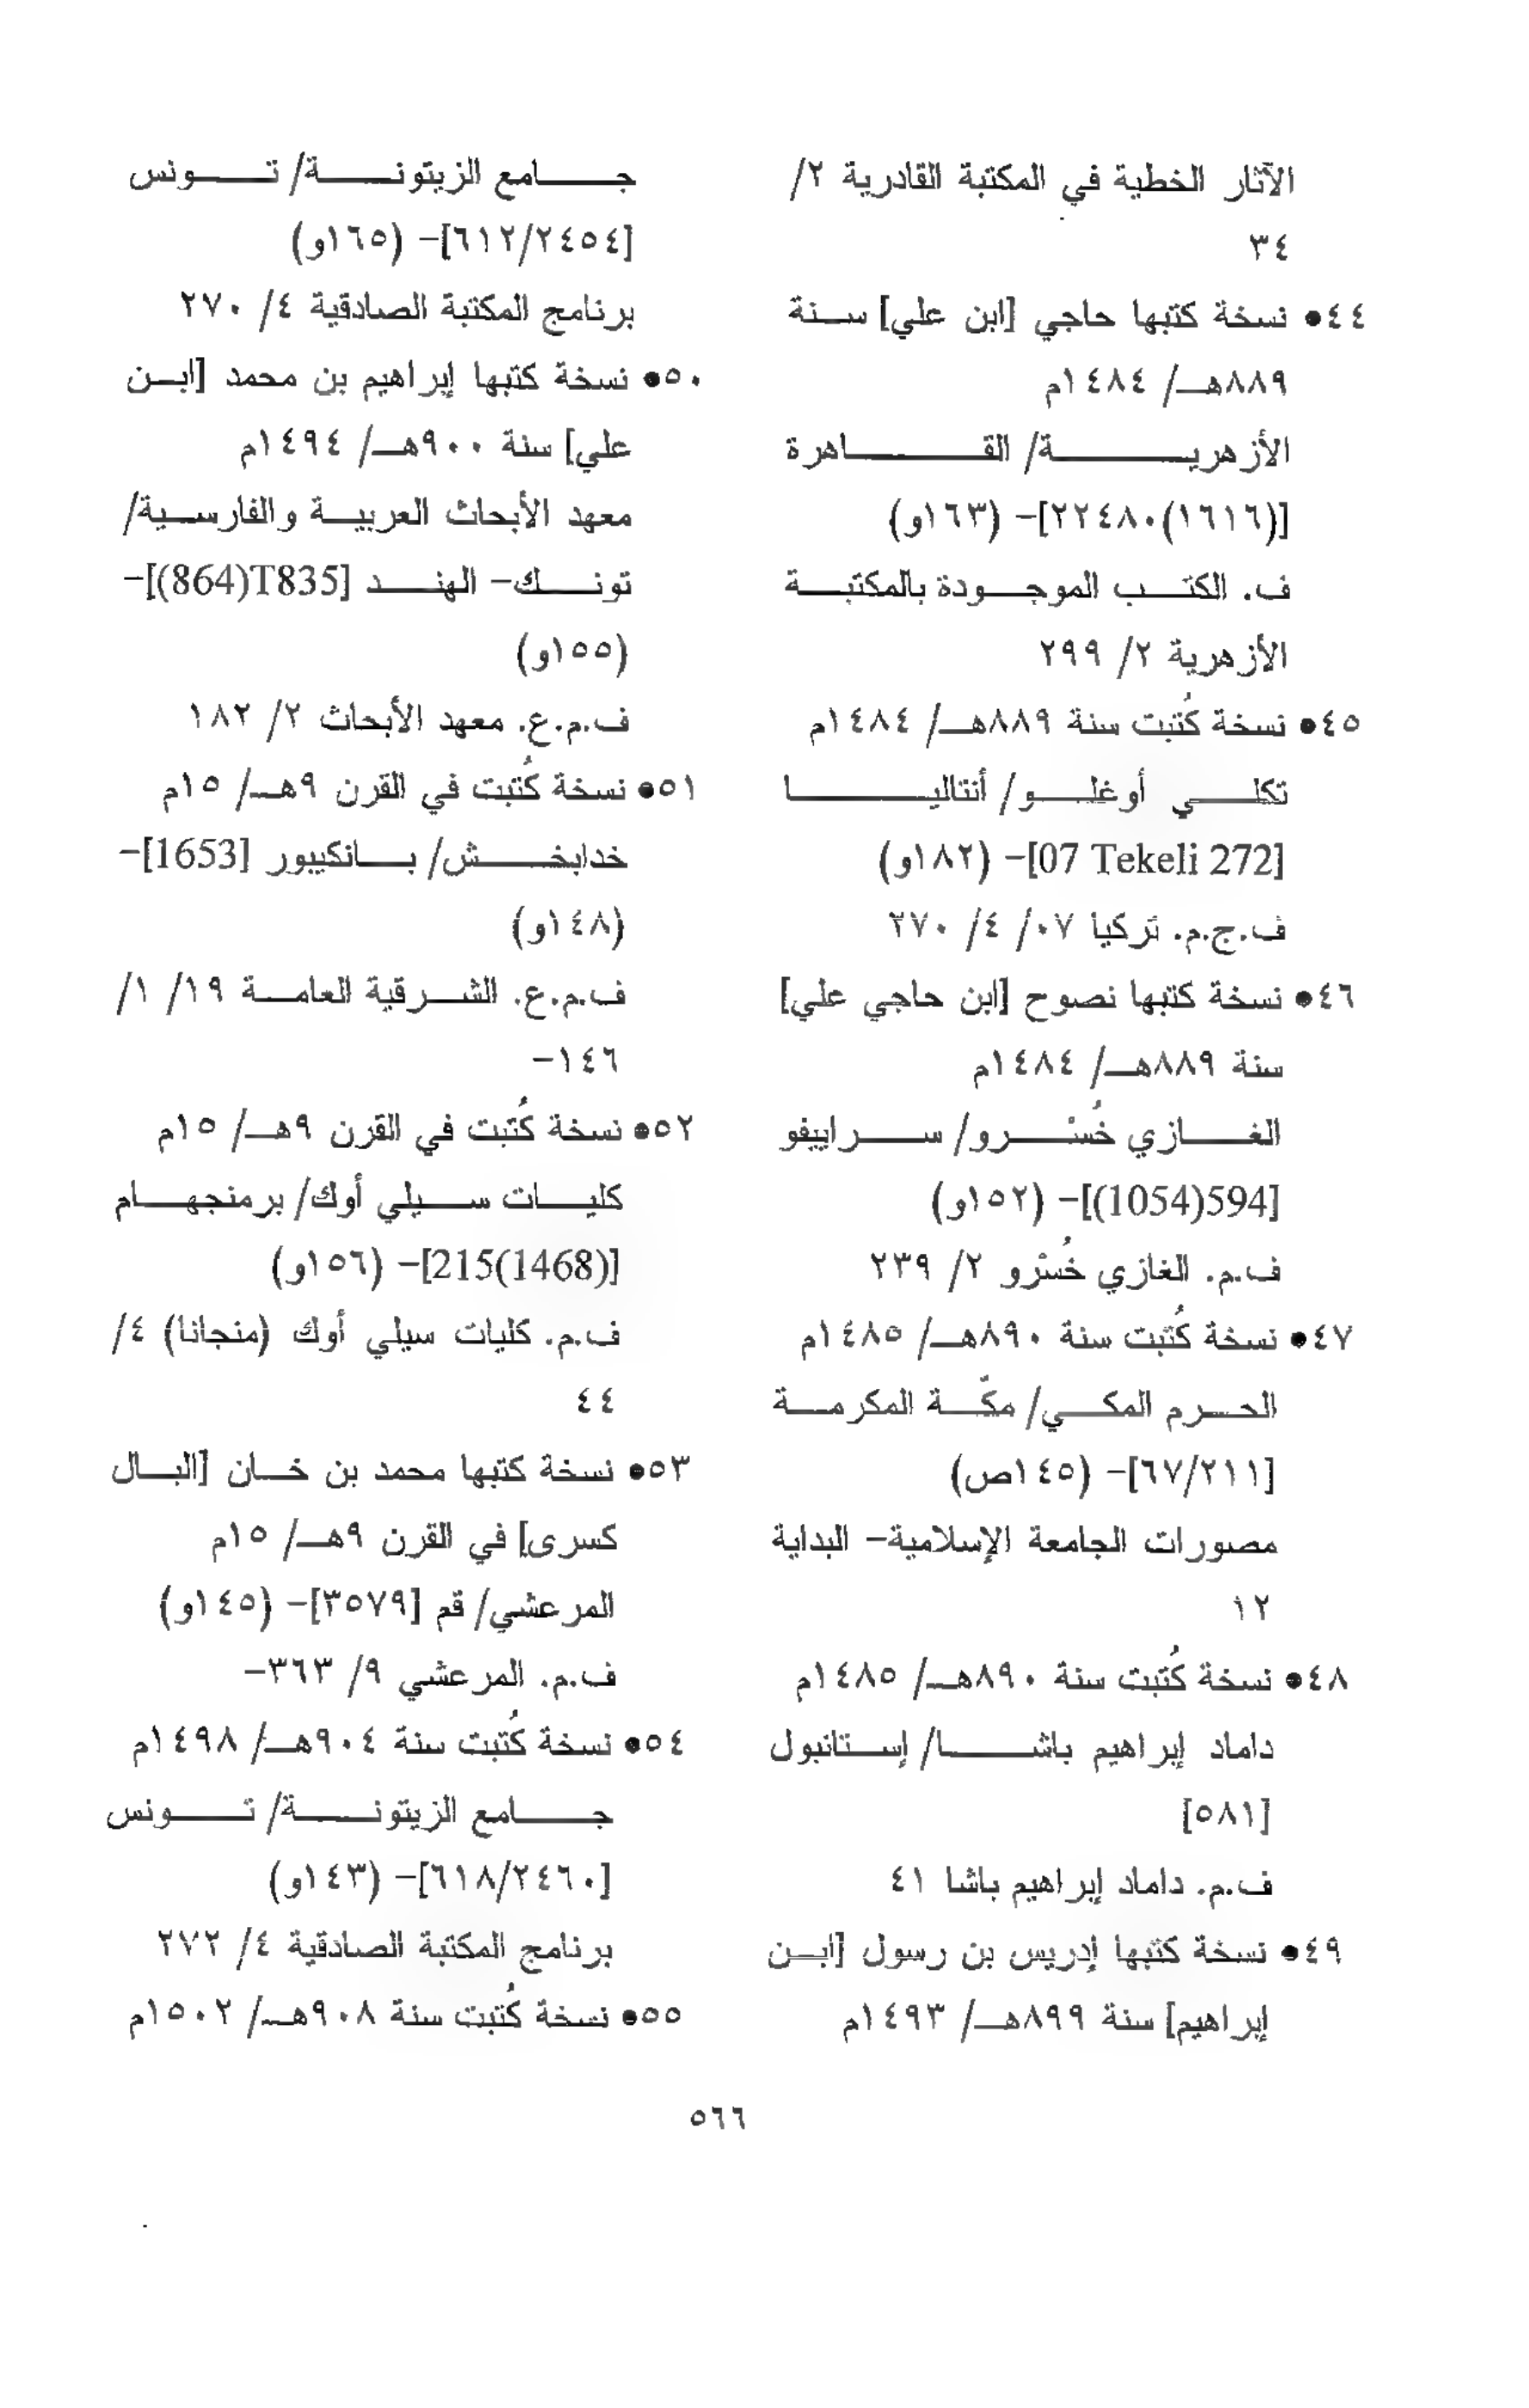 الآثار الخطية في المكتبة القادرية ٢/
٣٤
٤٤● نسخة كتبها حاجي [ابن علي] سنة
٨٨٩هـ/ ١٤٨٤م
الأزهرية/ القاهرة
[(١٦١٦)٢٢٤٨٠]- (١٦٣و)
ف. الكتب الموجودة بالمكتبة
الأزهرية ٢/ ٢٩٩
٤٥● نسخة كُتبت سنة ٨٨٩هـ/ ١٤٨٤م
تكلي أوغلو/ أنتاليا
[07 Tekeli 272]- (١٨٢و)
ف.ج.م. تركيا ٠٧/ ٤/ ٢٧٠
٤٦● نسخة كتبها نصوح [ابن حاجي علي]
سنة ٨٨٩هـ/ ١٤٨٤م
الغازي خُسْرو/ سراييفو
[594(1054)]- (١٥٢و)
ف.م. الغازي خُسْرو ٢/ ٢٣٩
٤٧● نسخة كُتبت سنة ٨٩٠هـ/ ١٤٨٥م
الحرم المكي/ مكّة المكرمة
[٦٧/٢١١]- (١٤٥ص)
مصورات الجامعة الإسلامية- البداية
١٢
٤٨● نسخة كُتبت سنة ٨٩٠هـ/ ١٤٨٥م
داماد إبراهيم باشا/ إستانبول
[٥٨١]
ف.م. داماد إبراهيم باشا ٤١
٤٩● نسخة كتبها إدريس بن رسول [ابن
إبراهيم] سنة ٨٩٩هـ/ ١٤٩٣م
جامع الزيتونة/ تونس
[٦١٢/٢٤٥٤]- (١٦٥و)
برنامج المكتبة الصادقية ٤/ ٢٧٠
٥٠● نسخة كتبها إبراهيم بن محمد [ابن
علي] سنة ٩٠٠هـ/ ١٤٩٤م
معهد الأبحاث العربية والفارسية/
تونك- الهند [T835(864)]-
(١٥٥و)
ف.م.ع. معهد الأبحاث ٢/ ١٨٢
٥١● نسخة كُتبت في القرن ٩هـ/ ١٥م
خدابخش/ بانكيبور [1653]-
(١٤٨و)
ف.م.ع. الشرقية العامة ١٩/ ١/
١٤٦-
٥٢● نسخة كُتبت في القرن ٩هـ/ ١٥م
كليات سيلي أوك/ برمنجهام
[215(1468)]- (١٥٦و)
ف.م. كليات سيلي أوك (منجانا) ٤/
٤٤
٥٣● نسخة كتبها محمد بن خان [البال
كسرى] في القرن ٩هـ/ ١٥م
المرعشي/ قم [٣٥٧٩]- (١٤٥و)
ف.م. المرعشي ٩/ ٣٦٣-
٥٤● نسخة كُتبت سنة ٩٠٤هـ/ ١٤٩٨م
جامع الزيتونة/ تونس
[٦١٨/٢٤٦٠]- (١٤٣و)
برنامج المكتبة الصادقية ٤/ ٢٧٢
٥٥● نسخة كُتبت سنة ٩٠٨هـ/ ١٥٠٢م
٥٦٦